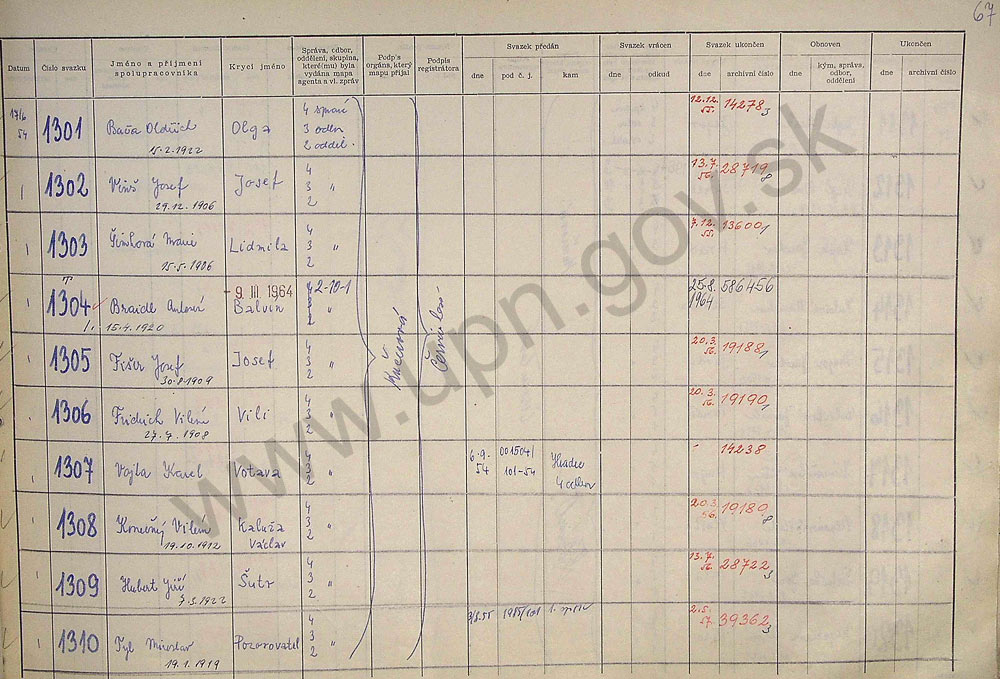 67
Datum
Číslo svazku
Jméno a příjmení spolupracovníka
Krycí jméno
Správa, odbor, oddělení, skupina, které(mu) byla vydána mapa agenta a vl. zpráv
Podpis orgánu, který mapu přijal
Podpis registrátora
Svazek předán
dne
pod č. j.
kam
Svazek vrácen
dne
odkud
Svazek ukončen
dne
archivní číslo
Obnoven
dne
kým, správa, odbor, oddělení
Ukončen
dne
archivní číslo
17/6 54 1301 Bača Oldřich Olga 4 správi 12.12. 55. 14278 3
3 odbor
15.2.1922 2 odděl.
1302 Josef Josef 4 3 2 " 13.7. 56. 28719 8
29.12.1906
1303 Lidmila 4 3 2 " 7.12. 55. 13600 1
15.5.1906
T 1304 Braidl Antonín - 9. III. 1964 Balvín 2-10-1 " 25.8. 1964 586456
15.4.1920
1305 Fišer Josef Josef 4 3 2 " 20.3. 56. 19188 1
30.8.1909
Kučerová
1306 Fridrich Vilém Vili 4 3 2 " 20.3. 56. 19190 1
27.7.1908
1307 Vojta Karel Votava 4 3 2 " 6.9. 54 001504/ 101-54 Hradec 4 odbor - 14238
1308 Konečný Vilém Kaluža Václav 4 3 2 " 20.3. 56. 19189 8
19.10.1912
1309 Hubert Jiří Šutr 4 3 2 " 13.7. 56. 28722 3
7.3.1922
1310 Tyl Miroslav Pozorovatel 4 3 2 " 3/8.55 1. správ 2.5. 57. 39362 3
19.1.1919
www.upn.gov.sk